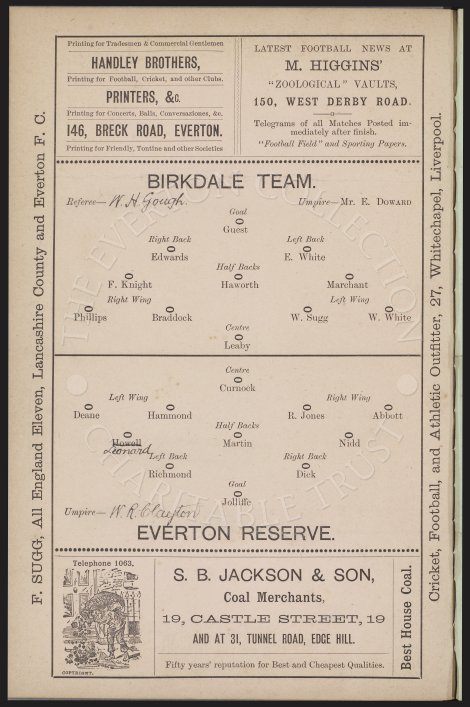 Printing for Tradesmen & Commercial Gentlemen
HANDLEY BROTHERS,
Printing for Football, Cricket, and other Clubs.
PRINTERS, &c.
Printing for Concerts, Balls, Conversaziones, &c.
146, BRECK ROAD, EVERTON.
Printing for Friendly, Tontine and other Societies
LATEST FOOTBALL NEWS AT
M. HIGGINS'
"ZOOLOGICAL" VAULTS,
150, WEST DERBY ROAD.
Telegrams of all Matches Posted im-
mediately after finish.
"Football Field" and Sporting Papers.
F. SUGG, All England Eleven, Lancashire County and Everton F. C.
Cricket, Football, and Athletic Outfitter, 27, Whitechapel, Liverpool.
BIRKDALE TEAM.
Referee— W. H. Gough. Umpire— Mr. E. Doward
Goal
Guest
Right Back Left Back
Edwards E. White
Half Backs
F. Knight Haworth Marchant
Right Wing Left Wing
Phillips Braddock W. Sugg W. White
Centre
Leaby
Centre
Curnock
Left Wing Right Wing
Deane Hammond R. Jones Abbott
Half Backs
Howell Martin Nidd
Leonard
Left Back Right Back
Richmond Dick
Goal
Jolliffe
Umpire— W. R. Clayton
EVERTON RESERVE.
Telephone 1063,
COPYRIGHT.
S. B. JACKSON & SON,
Coal Merchants,
19, CASTLE STREET, 19
AND AT 31, TUNNEL ROAD, EDGE HILL.
Fifty years' reputation for Best and Cheapest Qualities.
Best House Coal.
THE EVERTON COLLECTION
CHARITABLE TRUST